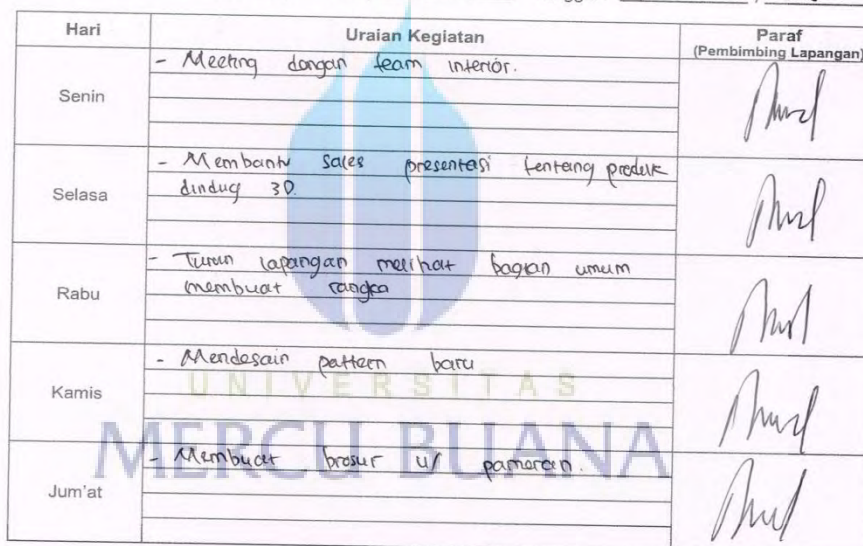 Hari Uraian Kegiatan Paraf
(Pembimbing Lapangan)
Senin
- Meeting dengan team interior.
Selasa
- Membantu sales presentasi tentang produk
dinding 3D.
Rabu
- Turun lapangan melihat bagian umum
membuat rangka
Kamis
- Mendesain pattern baru
UNIVERSITAS
MERCU BUANA
Jum'at
- Membuat brosur u/ pameran.